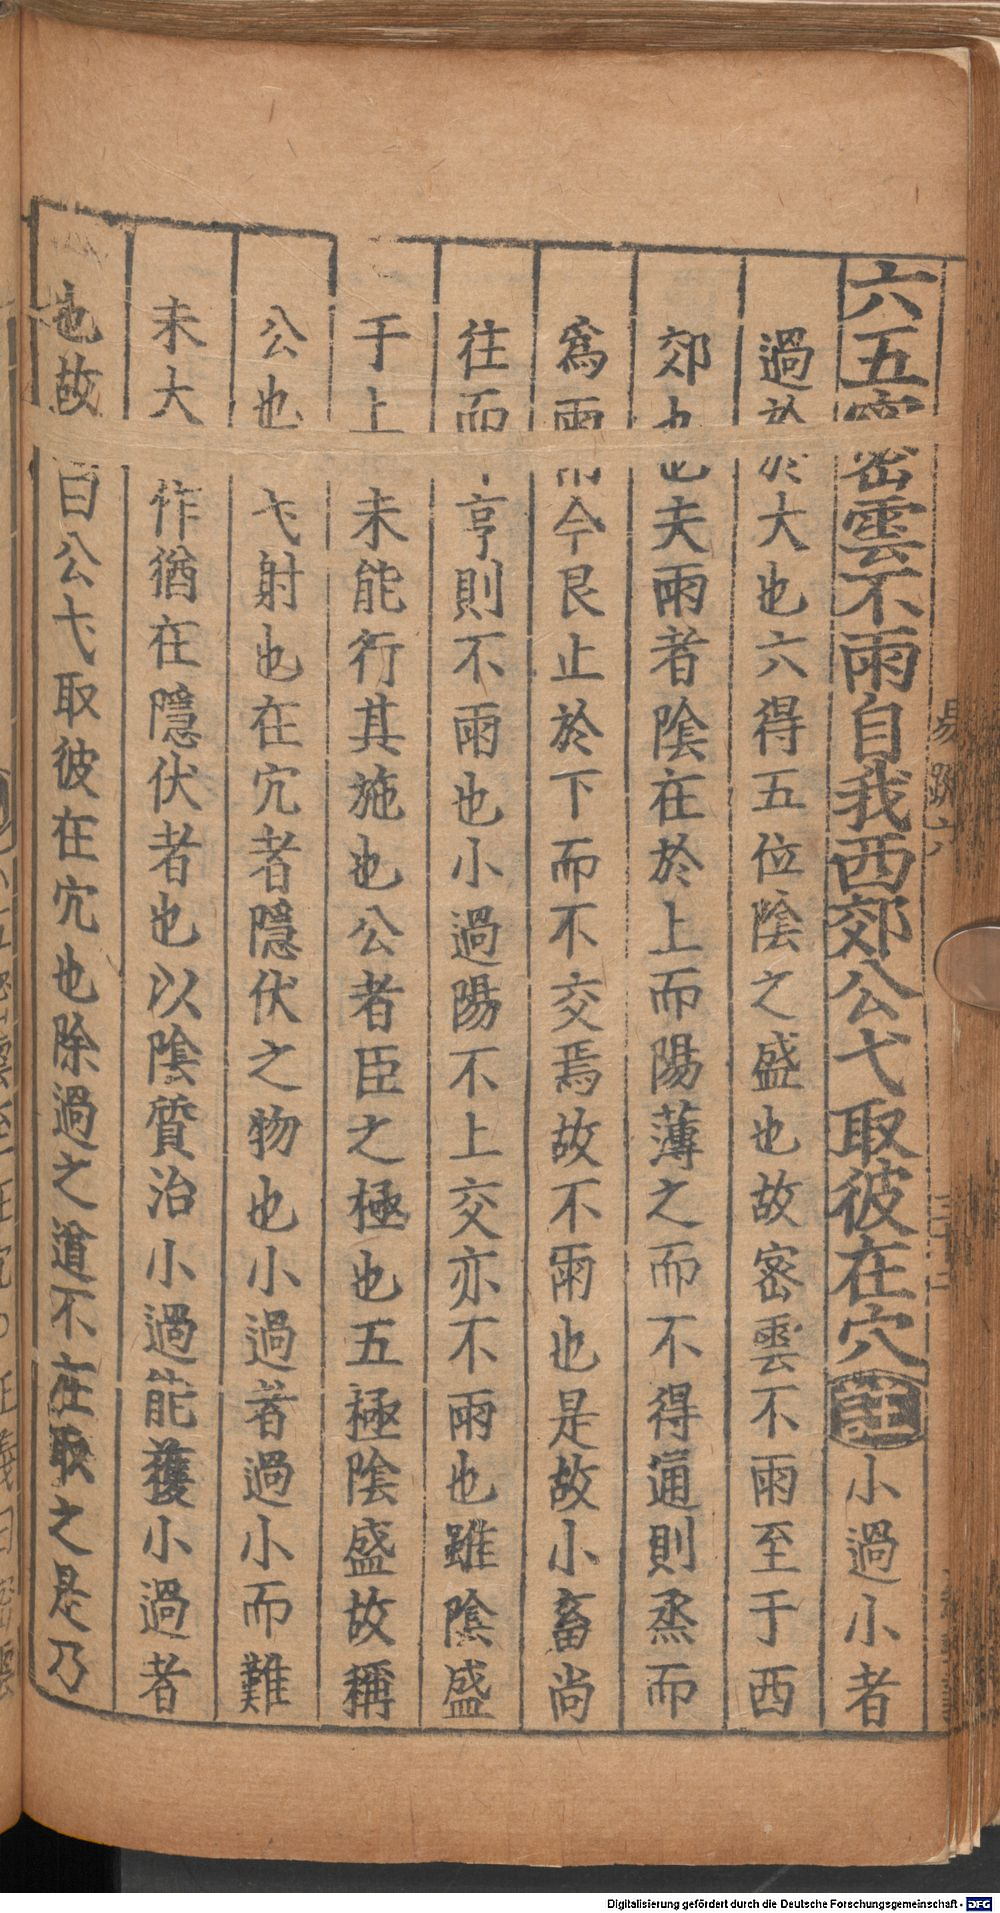 六五密雲不雨自我西郊公弋取彼在穴註小過小者
過於大也六得五位陰之盛也故密雲不雨至于西
郊也夫雨者陰在於上而陽薄之而不得通則烝而
爲雨今艮止於下而不交焉故不雨也是故小畜尚
往而亨則不雨也小過陽不上交亦不雨也雖陰盛
于上未能行其施也公者臣之極也五極陰盛故稱
公也弋射也在穴者隱伏之物也小過者過小而難
未大作猶在隱伏者也以陰質治小過能獲小過者
也故曰公弋取彼在穴也除過之道不在取之是乃
易疏六
三十二
Digitalisierung gefördert durch die Deutsche Forschungsgemeinschaft - DFG